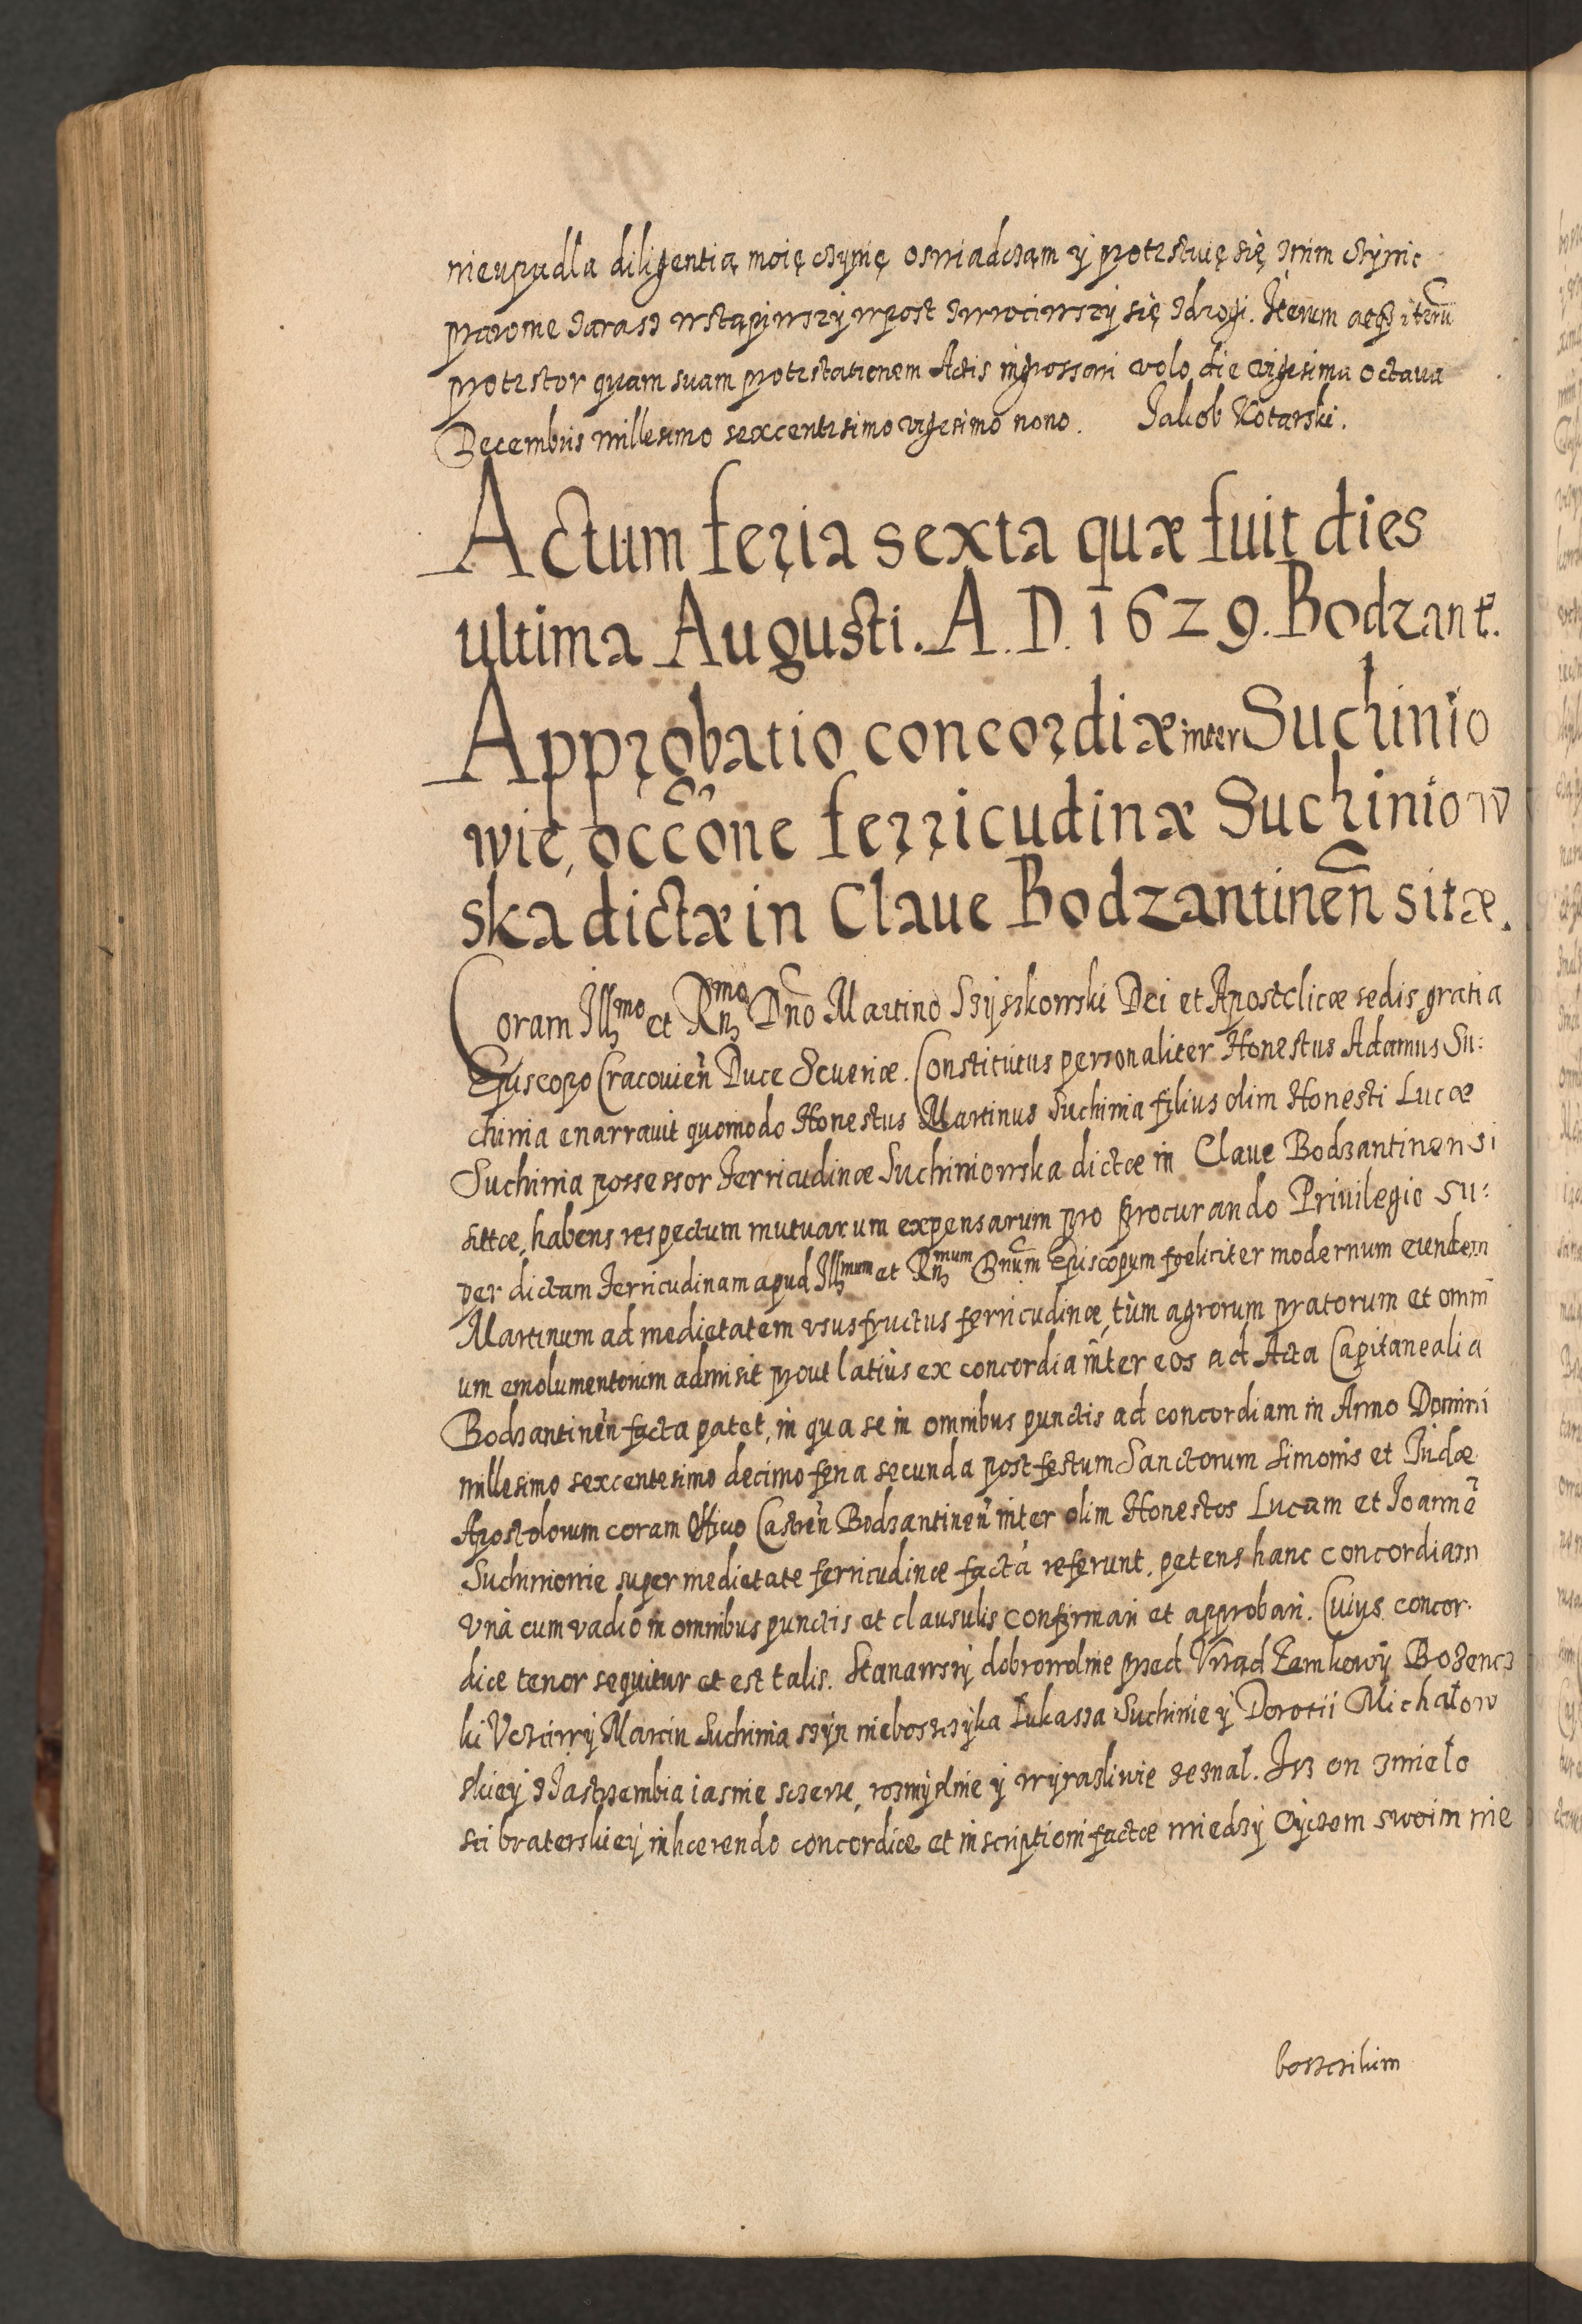 nieupadla diligentią moię czynię oswiadczam y protestuię się znim czynic
prawone zaraz wstąpiwszy wpost zwrociwszy się zdrogi. Iterum atq3 iterũ
protestor quam suam protestationem Actis ingrossari volo die vigesima octaua
Decembris millesimo sexcentesimo vigesimo nono. Jakob Kotarski.
Actum feria sexta quæ fuit dies
ultima Augusti. A. D. 1629. Bodzant.
Approbatio concordiæ inter Suchinio
wie, occõne ferricudinæ Suchiniow
ska dictæ in Claue Bodzantineñ sitæ.
Coram Illmo et Rnmo Dño Martino Szyszkowski Dei et Apostclicæ sedis gratia
Episcopo Cracouieñ Duce Seueriæ. Constitutus personaliter Honestus Adamus Su:
chinia enarrauit quomodo Honestus Martinus Suchinia filius olim Honesti Lucæ
Suchinia possessor Ferricudinæ Suchiniowska dictæ in Claue Bodzantinensi
sittæ, habens respectum mutuarum expensarum pro procurando Priuilegio su:
per dictam Ferricudinam apud Illmum et Rnmum Dnum Episcopum fœliciter modernum eundem
Martinum ad medietatem vsusfructus ferricudinæ, tùm agrorum pratorum et omni
um emolumentorum admisit prout latiùs ex concordia inter eos ad Acta Capitanealia
Bodzantineñ facta patet, in qua se in omnibus punctis ad concordiam in Anno Domini
millesimo sexcentesimo decimo feria secunda post festum Sanctorum Simonis et Iudæ
Apostolorum coram Offició Castreñ Bodzantineñ inter olim Honestos Lucam et Ioannẽ
Suchiniowie super medietate ferricudinæ factà referunt. petens hanc concordiam
vnà cum vadio in omnibus punctis et clausulis confirmari et approbari. Cuius concor
diæ tenor sequitur et est talis. Stanawszy dobrowolnie przed Vrząd Zamkowy Bozenc3
ki Vczciwy Marcin Suchinia syn nieboszczyka Łukasza Suchinie y Dorotii Michałow
skiey z Jastrzembia iasnie sczerze, rozmyslnie y wyrazliwie zeznal. Isz on z miło
sci braterskiey inhærendo concordiæ et inscriptioni factæ miedzy Oyczem swoim nie
boszczikim